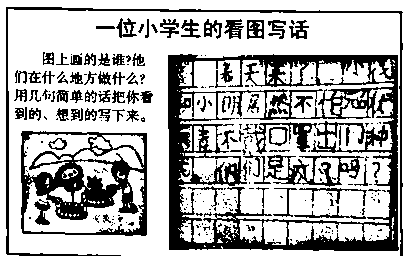 一位小学生的看图写话
图上画的是谁?他
们在什么地方做什么?
用几句简单的话把你看
到的、想到的写下来。
春天来了
小明居然不怕
不戴口罩出门种
他们是疯了吗?